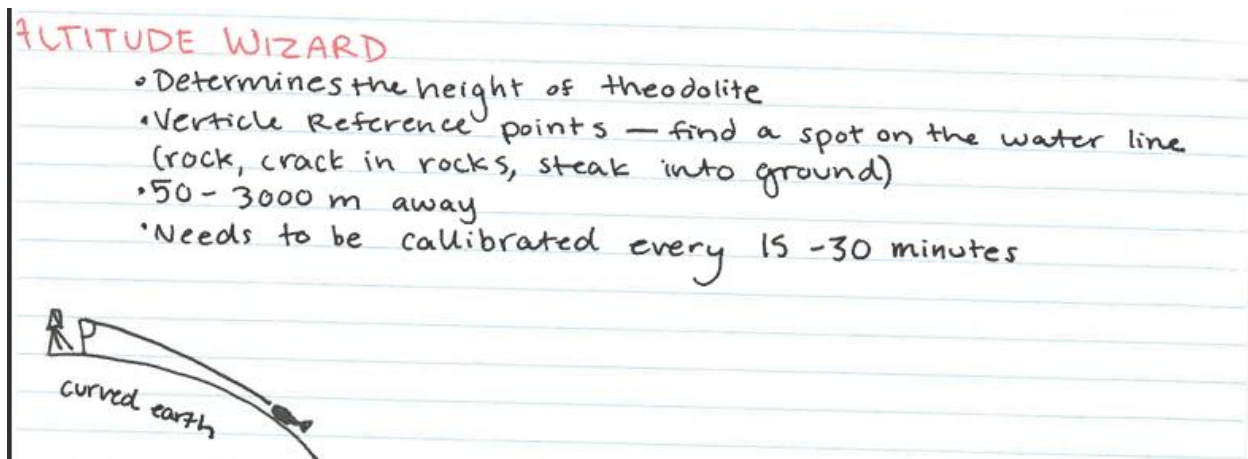 ALTITUDE WIZARD
• Determines the height of theodolite
• Verticle Reference points — find a spot on the water line
(rock, crack in rocks, steak into ground)
• 50 - 3000 m away
• Needs to be callibrated every 15 - 30 minutes
P
curved earth